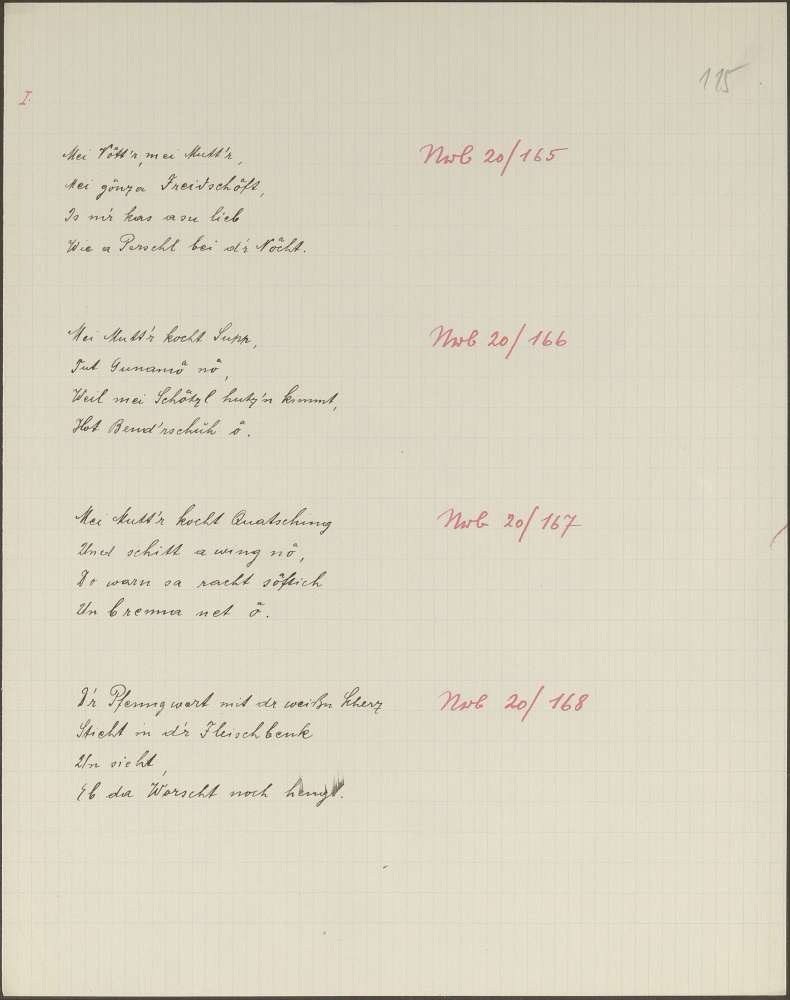 115
I.
Mei Vött'r, mei Mutt'r, Nwb 20/165
Mei gönza Freidschöft,
Is mir kas asu lieb
Wie a Perschl bei d'r Nöcht.
Mei Mutt'r kocht Supp, Nwb 20/166
Tut nö,
Weil mei Schötzl hutz'n kimmt,
Hot Bend'rschuh ö.
Mei Mutt'r kocht Quatsching Nwb 20/167
Und schitt a wing nö,
Do warn sa racht söftich
Un brenna net ö.
D'r Pfenngwert mit dr weißn Scherz Nwb 20/168
Sticht in d'r Fleischbenk
Un sieht,
Eb da Worscht noch hengt.